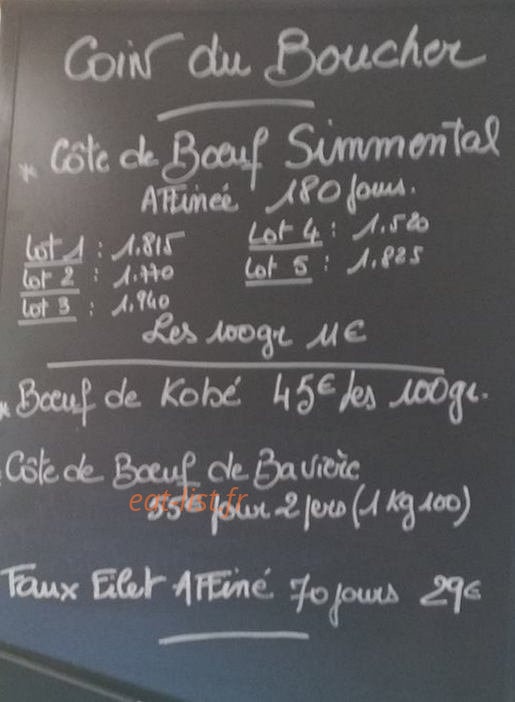 Coin du Boucher
* Côte de Boeuf Simmental
Affineé 180 Jours.
Lot 1 : 1.815
Lot 2 : 1.770
Lot 3 : 1.940
Lot 4 : 1.520
Lot 5 : 1.825
Les 100gr 11€
* Boeuf de Kobé 45€ les 100gr.
Côte de Boeuf de Bavière
eat-list.fr
55€ pour 2 pers (1 kg 100)
Faux Filet Affiné 70 jours 29€